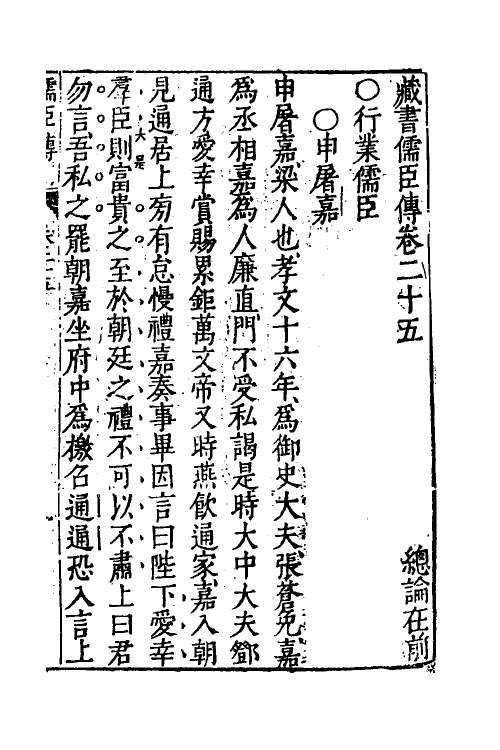 藏書儒臣傳卷二十五　總論在前
○行業儒臣
○申屠嘉
申屠嘉、梁人也、孝文十六年、爲御史大夫、張蒼免、嘉
爲丞相、嘉爲人廉直、門不受私謁是時大中大夫鄧
通方愛幸賞賜累鉅萬文帝又時燕飲通家、嘉入朝
見通居上旁有怠慢禮嘉奏事畢因言曰陛下愛幸
羣臣則富貴之至於朝廷之禮不可以不肅上曰君
大是
勿言吾私之罷朝嘉坐府中爲檄召通通恐入言上
儒臣傳